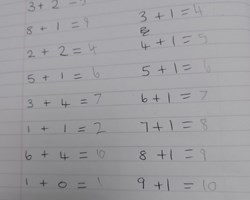 3 + 2 = 5
8 + 1 = 9
2 + 2 = 4
5 + 1 = 6
3 + 4 = 7
1 + 1 = 2
6 + 4 = 0
1 + 0 = 1
3 + 1 = 4
4 + 1 = 5
5 + 1 = 6
6 + 1 = 7
7 + 1 = 8
8 + 1 = 9
9 + 1 = 10